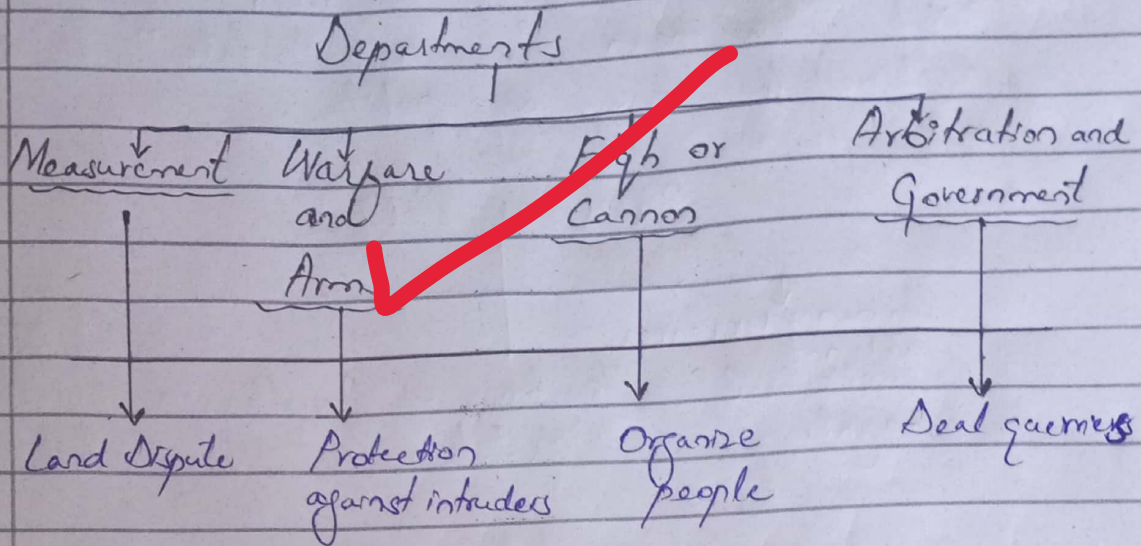 Departments
Measurement
Warfare
and
Arm
Fiqh or
Cannon
Arbitration and
Government
Land Dispute
Protection
against intruders
Organize
people
Deal